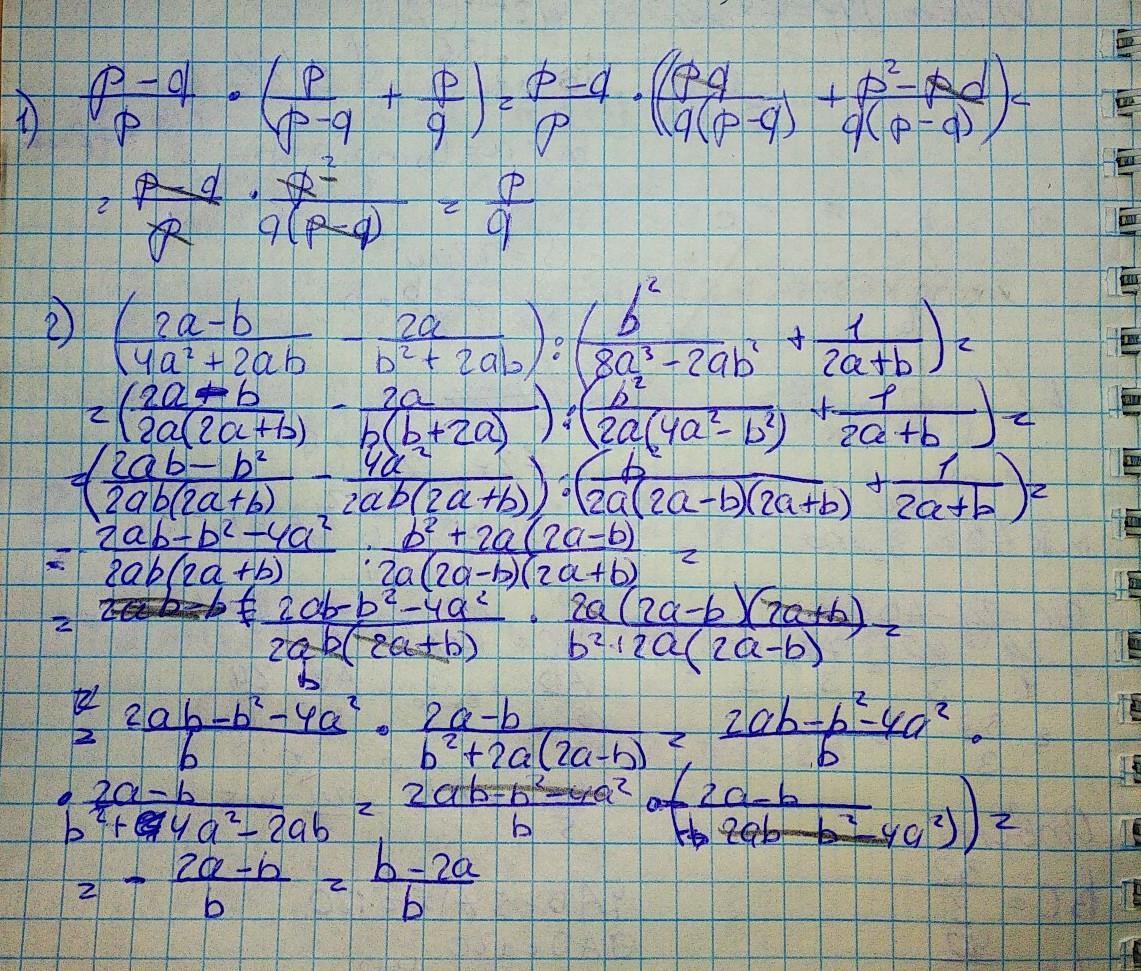 1) (p-q)/p · (p/(p-q) + p/q) = (p-q)/p · ((pq)/(q(p-q)) + (p²-pq)/(q(p-q))) =
= (p-q)/p · p²/(q(p-q)) = p/q
2) ((2a-b)/(4a²+2ab) - 2a/(b²+2ab)) : (b²/(8a³-2ab²) + 1/(2a+b)) =
= ((2a-b)/(2a(2a+b)) - 2a/(b(b+2a))) : (b²/(2a(4a²-b²)) + 1/(2a+b)) =
= ((2ab-b²)/(2ab(2a+b)) - 4a²/(2ab(2a+b))) : (b²/(2a(2a-b)(2a+b)) + 1/(2a+b)) =
= (2ab-b²-4a²)/(2ab(2a+b)) : (b²+2a(2a-b))/(2a(2a-b)(2a+b)) =
= (2ab-b²-4a²)/(2ab(2a+b)) · (2a(2a-b)(2a+b))/(b²+2a(2a-b)) =
b
= (2ab-b²-4a²)/b · (2a-b)/(b²+2a(2a-b)) = (2ab-b²-4a²)/b ·
· (2a-b)/(b²+4a²-2ab) = (2ab-b²-4a²)/b · (-(2a-b)/(2ab-b²-4a²)) =
= - (2a-b)/b = (b-2a)/b